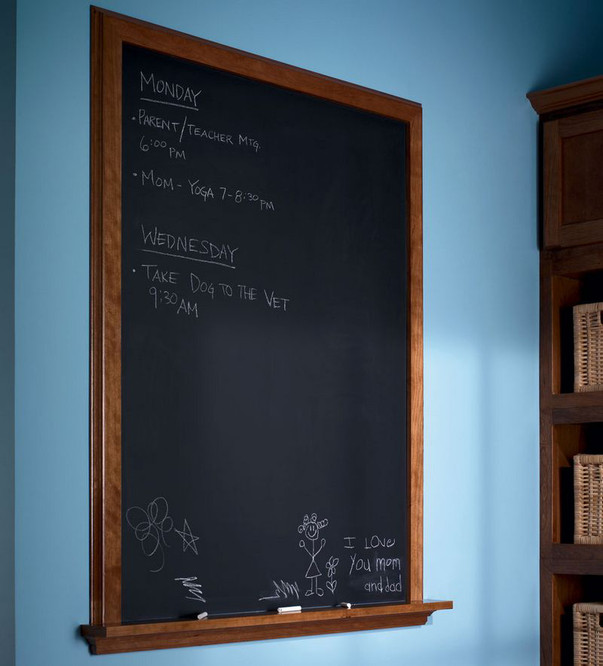 MONDAY
• PARENT/TEACHER MTG.
6:00 PM
• MOM - YOGA 7-8:30 PM
WEDNESDAY
• TAKE DOG TO THE VET
9:30 AM
I LOVE
You mom
and dad